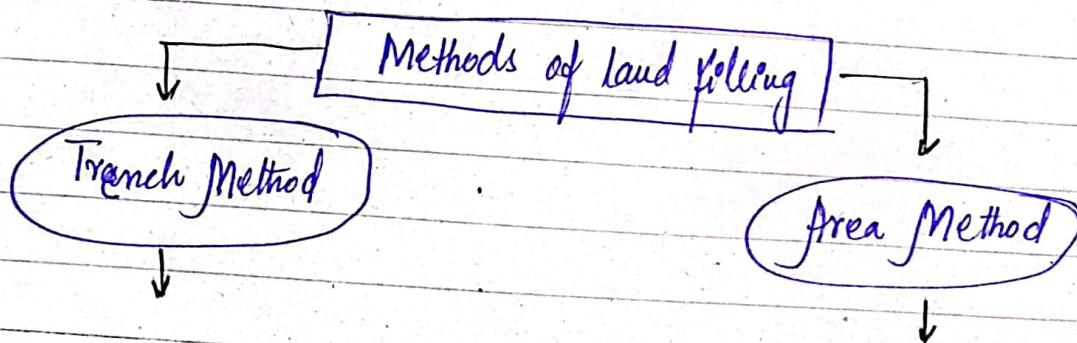 Methods of land filling
Trench Method
Area Method